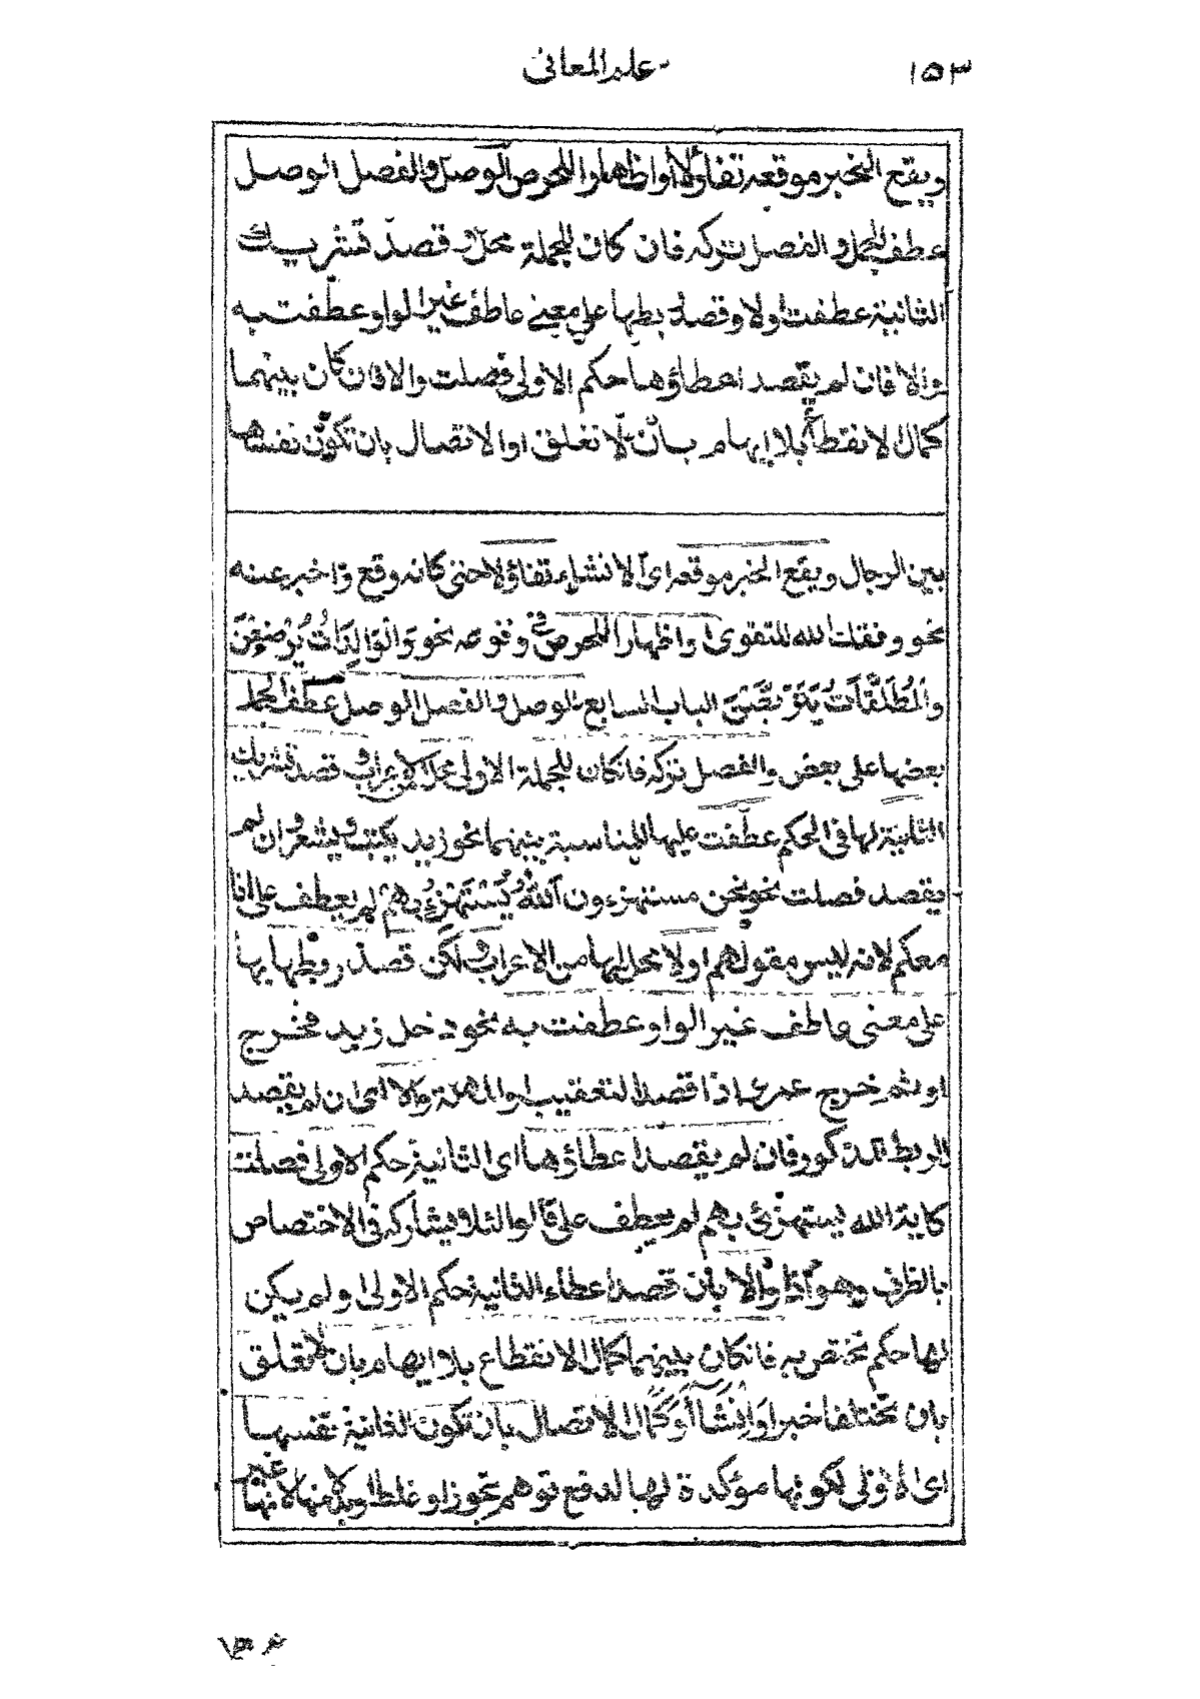 علم المعانى ١٥٣
ويقع الخبر موقعه تفاؤلا او اظهارا للحرص الوصل والفصل الوصل
عطف الجمل والفصل تركه فان كان للجملة محل و قصد تشريك
الثانية عطفت اولا وقصد ربطها على معنى عاطف غير الواو عطفت به
والا فان لم يقصد اعطاؤها حكم الاولى فصلت والا فان كان بينهما
كمال الانقطاع بلا ايهام بان لا تعلق او الاتصال بان تكون نفسها
بين الرجال ويقع الخبر موقعه اى الانشاء تفاؤلا حتى كانه وقع واخبر عنه
نحو وفقك الله للتقوى او اظهارا للحرص فى وقوعه نحو وَالْوَالِدَاتُ يُرْضِعْنَ
وَالْمُطَلَّقَاتُ يَتَرَبَّصْنَ الباب السابع الوصل والفصل الوصل عطف الجمل
بعضها على بعض والفصل تركه فان كان للجملة الاولى محل من الاعراب و قصد تشريك
الثانية لها فى الحكم عطفت عليها للمناسبة بينهما نحو زيد يكتب ويشعر وان لم
يقصد فصلت نحو نحن مستهزءون اللهُ يَسْتَهْزِءُ بِهِمْ لم يعطف على انا
معكم لانه ليس مقولهم اولا محل لها من الاعراب ولكن قصد ربطها بها
على معنى عاطف غير الواو عطفت به نحو دخل زيد فخرج
او ثم خرج عمرو اذا قصد التعقيب او المهلة والا اى ان لم يقصد
الربط المذكور فان لم يقصد اعطاؤها اى الثانية حكم الاولى فصلت
كاية الله يستهزئ بهم لم يعطف على قالوا لئلا يشاركه فى الاختصاص
بالظرف وهو اذا والا بان قصد اعطاء الثانية حكم الاولى او لم يكن
لها حكم تختص به فان كان بينهما كمال الانقطاع بلا ايهام بان لا تعلق
بان تختلفا خبرا وَاِنْشَاءً اَوْ كَمَال الاتصال بان تكون الثانية نفسها
اى الاولى لكونها مؤكدة لها لدفع توهم تجوز او غلط او بدلا منها لانها غير